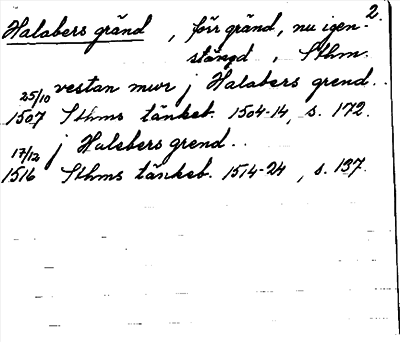 2.
Halabers gränd, förr gränd, nu igen-
stängd, Sthm.
vestan mur j Halabers grend..
25/10
1507 Sthms tänkeb. 1504-14, s. 172.
j Halebers grend..
17/12
1516 Sthms tänkeb. 1514-24, s. 137.